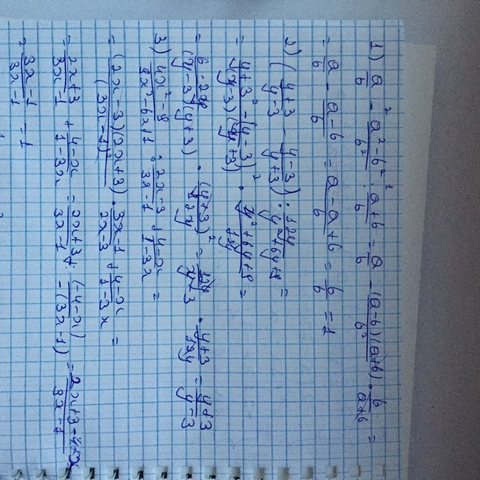 1) a/b - (a²-b²)/b² : (a+b)/b = a/b - (a-b)(a+b)/b² · b/(a+b) =
= a/b - (a-b)/b = (a-a+b)/b = b/b = 1
2) ((y+3)/(y-3) - (y-3)/(y+3)) : 12y/(y²+6y+9) =
= ((y+3)²-(y-3)²)/((y-3)(y+3)) · (y²+6y+9)/12y =
= 6·2y/((y-3)(y+3)) · (y+3)²/12y = 12y/(y-3) · (y+3)/12y = (y+3)/(y-3)
3) (4x²-9)/(9x²-6x+1) : (2x-3)/(3x-1) + (4-x)/(1-3x) =
= (2x-3)(2x+3)/(3x-1)² · (3x-1)/(2x-3) + (4-x)/(1-3x) =
= (2x+3)/(3x-1) + (4-x)/(1-3x) = (2x+3)/(3x-1) + (4-x)/-(3x-1) = (2x+3-4+x)/(3x-1)
= (3x-1)/(3x-1) = 1